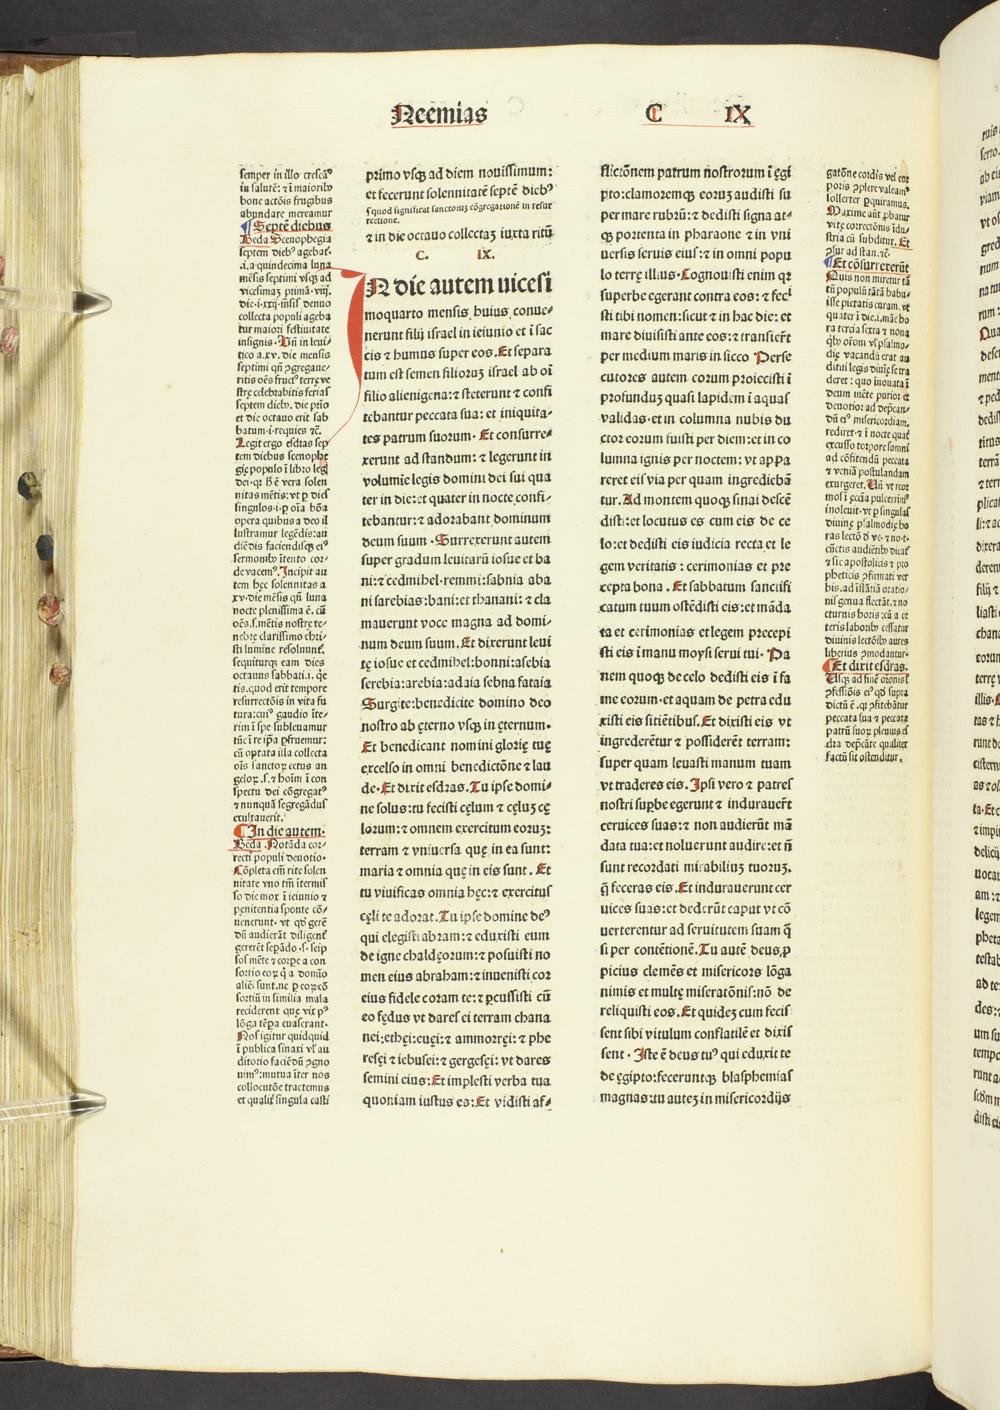 Neemias C IX
semper in illo crescẽꝰ
in salutẽ: ⁊ ĩ maiorib⁹
bone actõis frugibus
abundare mereamur
¶ Septẽ diebus
Beda Scenophegia
septem dieb⁹ agebať.
.i. a quindecima luna
mẽsis septimi vsqꝫ ad
vicesimaꝫ primã. viij.
die.i.xxij. m̃sis denuo
collecta populi ageba
tur maiori festiuitate
insignis. Vñ in leui/
tico a.xv. die mensis
septimi qñ ꝯgregaue/
ritis oẽs fruct⁹ terrę ve
strę celebrabitis ferias
septem dieb⁹. die prĩo
et die octauo erit sab
batum.i.requies ⁊c̃.
Legit ergo esdras sep
tem diebus scenophe
gię populo ĩ libro legꝭ
dei. qꝛ h̃ ẽ vera solen
nitas mẽtis: vt ꝑ dies
singulos.i.ꝑ oĩa bõa
opera quibus a deo il
lustramur legẽdis: au
diẽdis faciendisqꝫ ei⁹
sermonib⁹ ĩtento cor/
de vacem⁹. Incipit au
tem hęc solennitas a
xv. die mẽsis qñ luna
nocte plenissima ẽ. cũ
oẽs.s.mẽtis nostrę te/
nebrę clarissimo chri/
sti lumine resoluunť.
sequiturqꝫ eam dies
octauus sabbati.i. qe
tis. quod erit tempore
resurrectõis in vita fu
tura: cui⁹ gaudio ĩte/
rim ĩ spe subleuamur
tũc ĩ re ip̃a ꝑfruemur:
cũ optata illa collecta
oĩs sanctoꝝ cetus an
geloꝝ.s.⁊ hoĩm ĩ con
spectu dei cõgregat⁹
⁊ nunquã segregãdus
exultauerit.
¶ In die autem.
Beda. Notãda cor/
recti populi deuotio.
Cõpleta em̃ rite solen
nitate vno tm̃ ĩtermis
so die mox ĩ ieiunio ⁊
pęnitentia sponte cõ/
uenerunt. vt qđ gerẽ
dũ audierãt diligenť
gererẽt sepãdo.s.seip
sos mẽte ⁊ corꝑe a con
sortio eoꝝ q̃ a domĩo
aliẽi sunt. ne ꝑ eoꝝ cõ
sortiũ in similia mala
reciderent quę vix ꝑ
lõga tẽpa euaserant.
Nos igitur quidquid
ĩ publica sinaxi vꝉ au
ditorio faciẽdũ ꝯgno
uim⁹: mutua ĩter nos
collocutõe tractemus
et qualiť singula casti
primo vsqꝫ ad diem nouissimum:
et fecerunt solennitatẽ septẽ dieb⁹
ꝗ quod significat sanctoruꝫ cõgregationẽ in resur
rectione.
⁊ in die octauo collectaꝫ iuxta ritũ
C. IX.
IN die autem uicesi
moquarto mensis huius conue/
nerunt filij israel in ieiunio et ĩ sac
cis ⁊ humus super eos. Et separa
tum est semen filioruꝫ israel ab oĩ
filio alienigena: ⁊ steterunt ⁊ confi
tebantur peccata sua: et iniquita/
tes patrum suorum. Et consurre/
xerunt ad standum: ⁊ legerunt in
volumĩe legis domini dei sui qua
ter in die: et quater in nocte confi/
tebantur: ⁊ adorabant dominum
deum suum. Surrexerunt autem
super gradum leuitarũ iosue et ba
ni: ⁊ cedmihel. remmi: sabnia aba
ni sarebias: bani: et thanani: ⁊ cla
mauerunt voce magna ad domi/
num deum suum. Et dixerunt leui
tę iosue et cedmihel: bonni: asebia
serebia: arebia: adaia sebna fataia
Surgite: benedicite domino deo
nostro ab ęterno vsqꝫ in ęternum.
Et benedicant nomini glorię tuę
excelso in omni benedictõne ⁊ lau
de. Et dixit esdras. Tu ipse domi/
ne solus: tu fecisti cęlum ⁊ cęluꝫ cę
lorum: ⁊ omnem exercitum eoruꝫ:
terram ⁊ vniuersa quę in ea sunt:
maria ⁊ omnia quę in eis sunt. Et
tu viuificas omnia hęc: ⁊ exercitus
cęli te adorat. Tu ipse domine de⁹
qui elegisti abram: ⁊ eduxisti eum
de igne chaldęorum: ⁊ posuisti no
men eius abraham: ⁊ inuenisti cor
eius fidele coram te: ⁊ ꝑcussisti cũ
eo fędus vt dares ei terram chana
nei: ethei: euei: ⁊ ammorręi: ⁊ phe
resęi ⁊ iebusei: ⁊ gergesęi: vt dares
semini eius: Et implesti verba tua
quoniam iustus es: Et vidisti af/
flictõnem patrum nostrorum ĩ ęgi
pto: clamoremqꝫ eoruꝫ audisti su
per mare rubrũ: ⁊ dedisti signa at/
qꝫ portenta in pharaone ⁊ in vni
uersis seruis eius: ⁊ in omni popu
lo terrę illius. Cognouisti enim qꝛ
superbe egerant contra eos: ⁊ feci
sti tibi nomen: sicut ⁊ in hac die: et
mare diuisisti ante eos: ⁊ transiert̃
per medium maris in sicco Perse
cutores autem eorum proiecisti ĩ
profunduꝫ quasi lapidem ĩ aquas
validas. et in columna nubis du
ctor eorum fuisti per diem: et in co
lumna ignis per noctem: vt appa
reret eis via per quam ingrediebã
tur. Ad montem quoqꝫ sinai descẽ
disti: et locutus es cum eis de ce
lo: et dedisti eis iudicia recta et le
gem veritatis: cerimonias et pre
cepta bona. Et sabbatum sanctifi
catum tuum ostẽdisti eis: et mãda
ta et cerimonias et legem precepi
sti eis ĩ manu moysi serui tui. Pa
nem quoqꝫ de celo dedisti eis ĩ fa
me eorum. et aquam de petra edu
xisti eis sitiẽtibus. Et dixisti eis vt
ingrederẽtur ⁊ possiderẽt terram:
super quam leuasti manum tuam
vt traderes eis. Ipsi vero ⁊ patres
nostri suꝑbe egerunt ⁊ indurauert̃
ceruices suas: ⁊ non audierũt mã
data tua: et noluerunt audire: et ñ
sunt recordati mirabiliuꝫ tuoruꝫ.
q̃ feceras eis. Et indurauerunt cer
uices suas: et dederũt caput vt cõ
uerterentur ad seruitutem suam q̃
si per contẽtionẽ. Tu autẽ deus ꝓ
picius clemẽs et misericors lõga
nimis et multę miseratõnis: nõ de
reliquisti eos. Et quideꝫ cum fecis
sent sibi vitulum conflatilẽ et dixis
sent. Iste ẽ deus tu⁹ qui eduxit te
de ęgipto: feceruntqꝫ blasphemias
magnas: tu auteꝫ in misericordijs
gatõne cordis vel cor
poris ꝯplere valeam⁹
sollerter ꝑquiramus.
Maxime aũt ꝓbatur
vitę correctõnis ĩdu/
stria cũ subditur. Et
ꝯsur ad stan. ⁊c̃.
¶ Et cõsurrexerũt
Quis non miretur tã
tũ populũ tãtã habu/
isse pietatis curam. vt
quater ĩ die.i.mãe ho
ra tercia sexta ⁊ nona
qb⁹ orõni vꝉ psalmo/
dię vacandũ erat au
ditui legis diuię se tra
deret: quo ĩnouata ĩ
deum mẽte purior et
deuotior ad deꝑcan/
dũ ei⁹ misericordiam.
rediret. ⁊ ĩ nocte quať
excusso torpore somni
ad cõfitendũ peccata
⁊ veniã postulandam
exurgeret. Vñ vt reor
mos ĩ ęccĩa pulcerrim⁹
inoleuit. vt ꝑ singulas
diuinę psalmodię ho
ras lectõ đ ve. ⁊ no. t.
cũctis audiẽtib⁹ dicať
⁊ sic apostolicis ⁊ pro
pheticis ꝯfirmati ver
bis. ad ĩstãtiã oratio/
nis genua flectãt. ⁊ no
cturnis horis: cũ a ce
teris laborib⁹ cessatur
diuinis lectõib⁹ aures
liberius ꝯmodantur.
¶ Et dixit esdras.
Vsqꝫ ad finẽ orõnis ĩ
ꝯfessiõis ei⁹ qđ supra
dictũ ẽ. qꝛ ꝯfitebãtur
peccata sua ⁊ peccata
patrũ suoꝝ plenius es
dra deꝑcãte qualiter
factũ sit ostenditur.